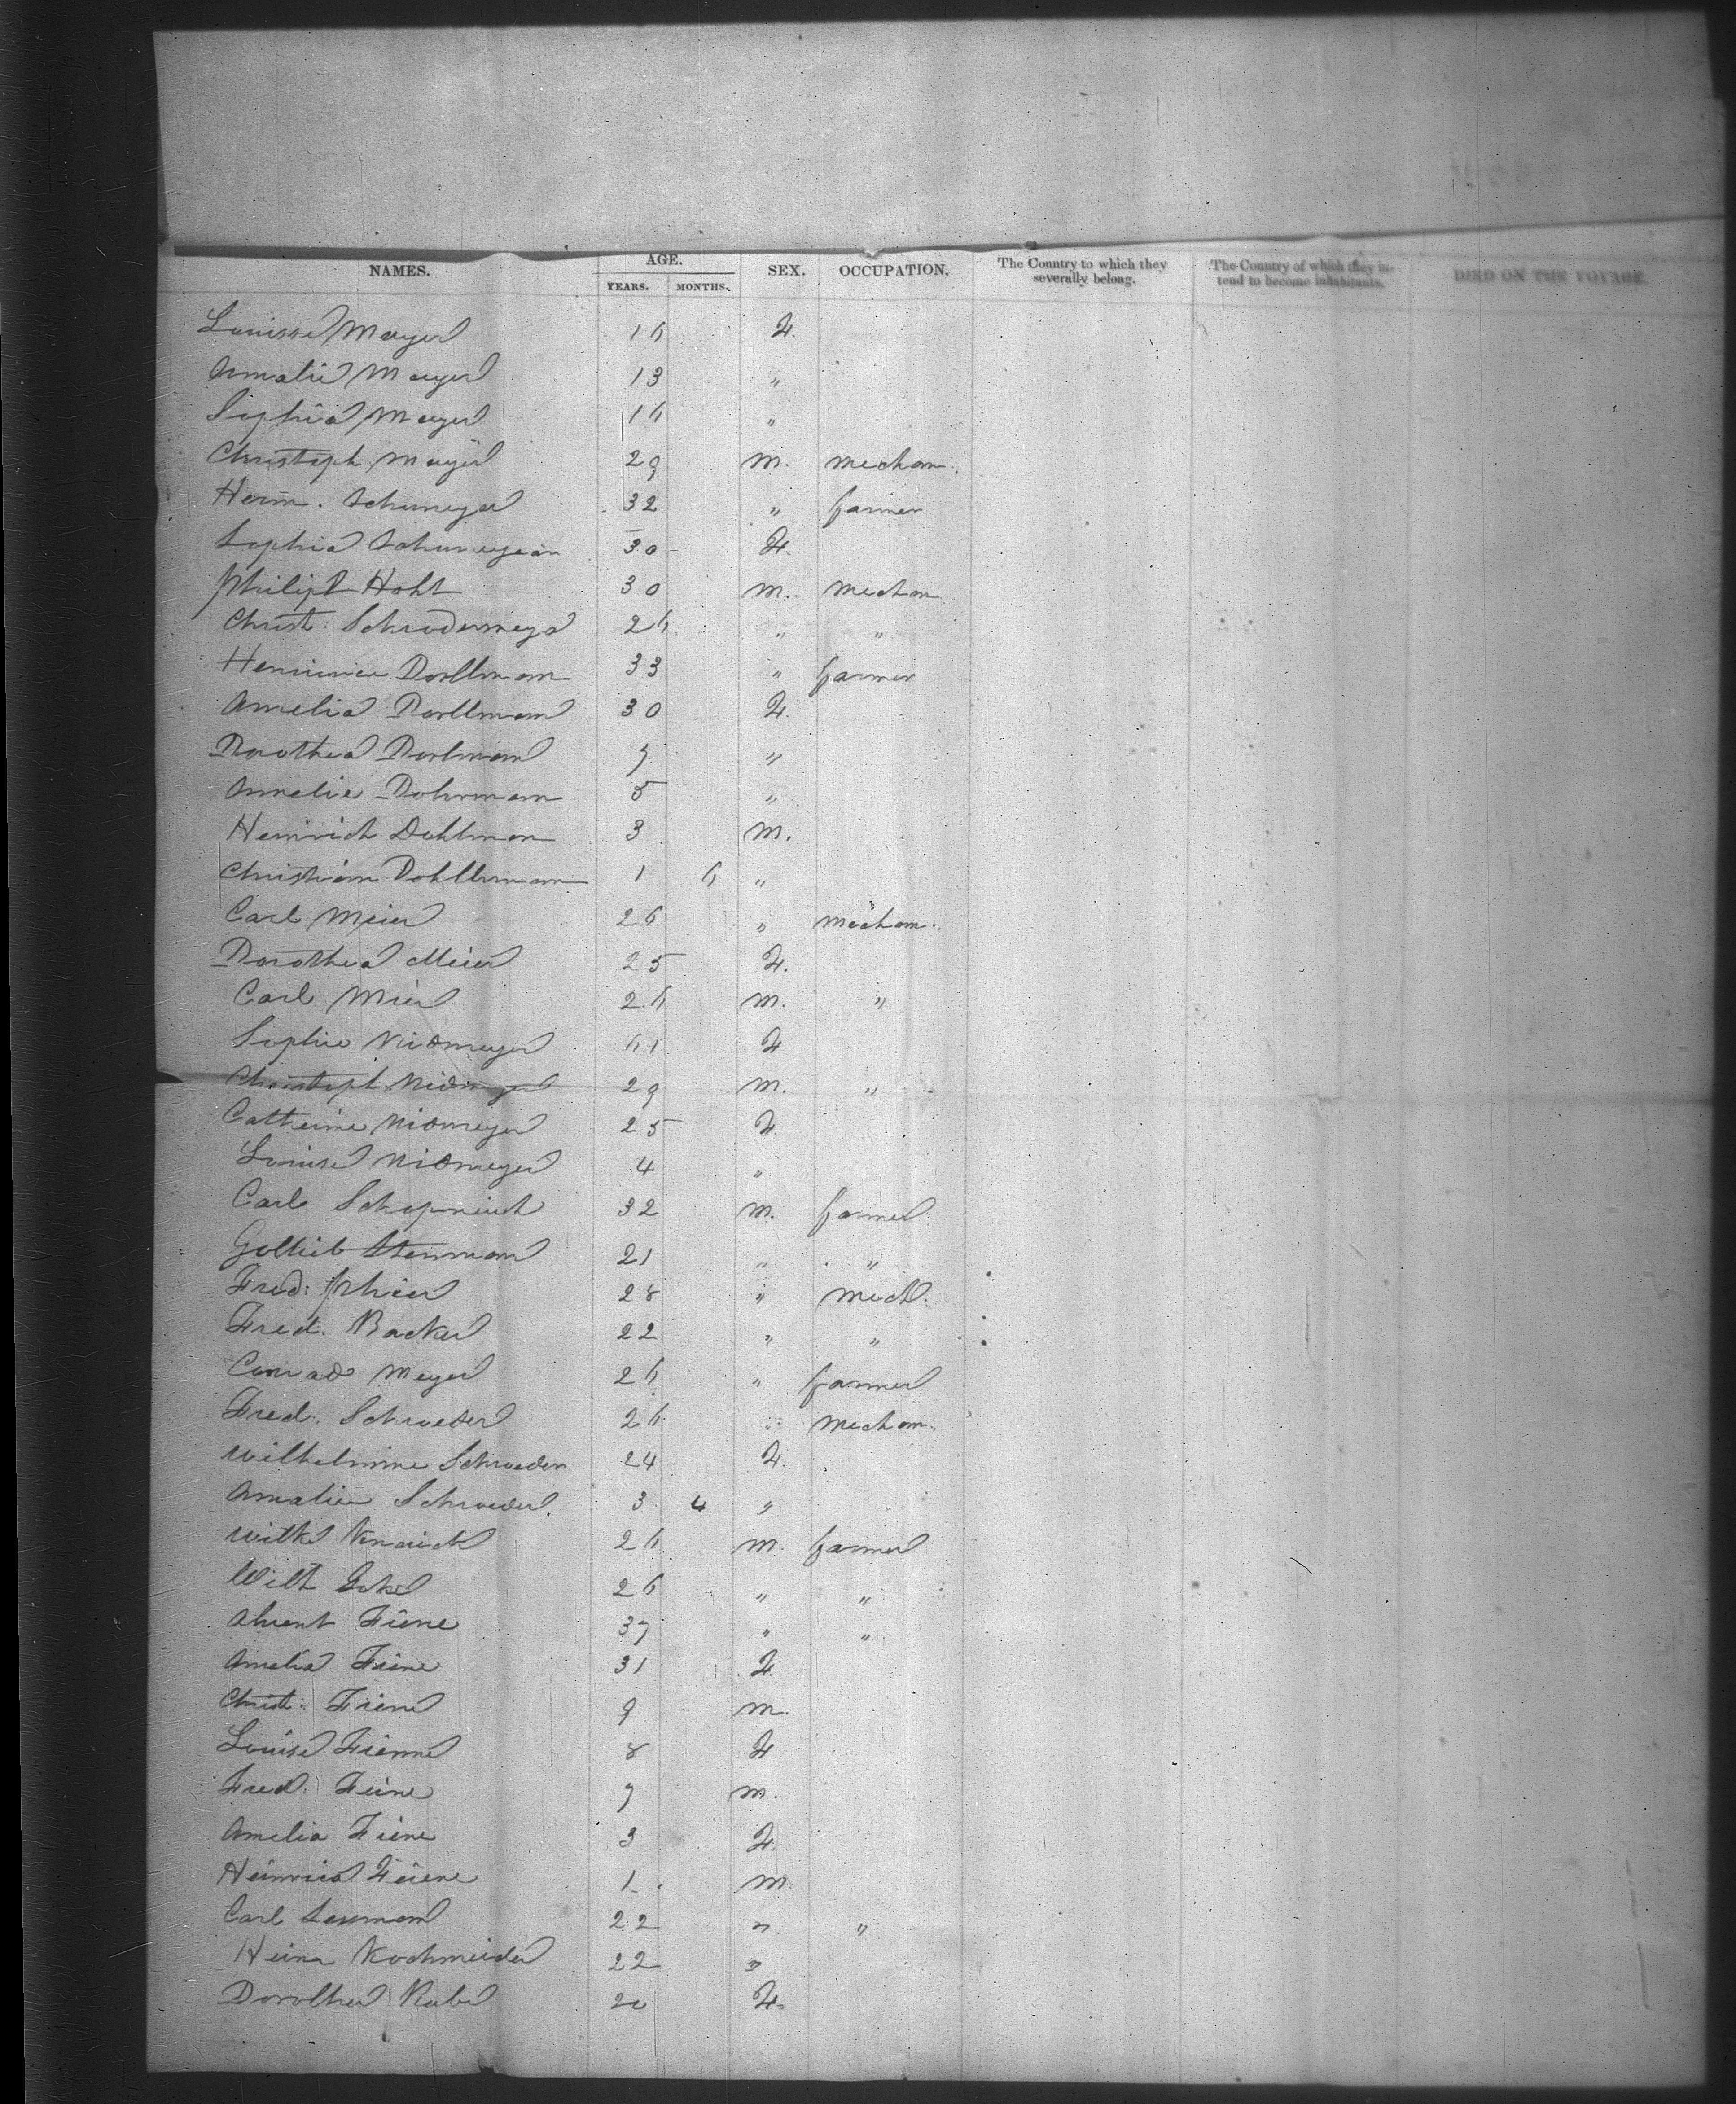 NAMES. AGE. SEX. OCCUPATION. The Country to which they severally belong. The Country of which they intend to become inhabitants. DIED ON THE VOYAGE.
YEARS. MONTHS.
Louisse Mayer 16 F.
Amalie Mayer 13 "
Sophia Mayer 16 "
Christoph Mayer 29 m. mechan.
Herm. 32 " farmer
Sophia 30 F.
Philipp Hoht 30 m. mechan
Christ: Schrodermeyr 26 " "
Dorllman 33 " farmer
Amelia Dorllman 30 F.
Dorothea Dorlman 7 "
Amelie Dohrman 5 "
Heinrich Dohlman 3 m.
Christian Dohllerman 1 6 "
Carl Meier 26 " mechan.
Dorothea Meier 25 F.
Carl Mier 26 m. "
Sophie Nidmeyer 61 F
Christoph Nidmeyer 29 m. "
Catherine Nidmeyer 25 F.
Louise Nidmeyer 4 "
Carl 32 m. farmer
Gottlieb Steinman 21 " "
Fred: 28 " mech.
Fred. Backer 22 " "
Conrad Meyer 26 " farmer
Fred. Schroeder 26 " mechan.
Wilhelmine Schroeder 24 F.
Amalie Schroeder 3 4 "
26 m. farmer
26 " "
Fiene 37 " "
Amelia Fiene 31 F.
Christ: Fiene 9 m.
Louise Fienne 8 F
Fred: Feine 7 m.
Amelia Fiene 3 F.
Feiene 1 m.
Carl Lessman 22 " "
Kochmeider 22 "
Dorothea Rabe 20 F.